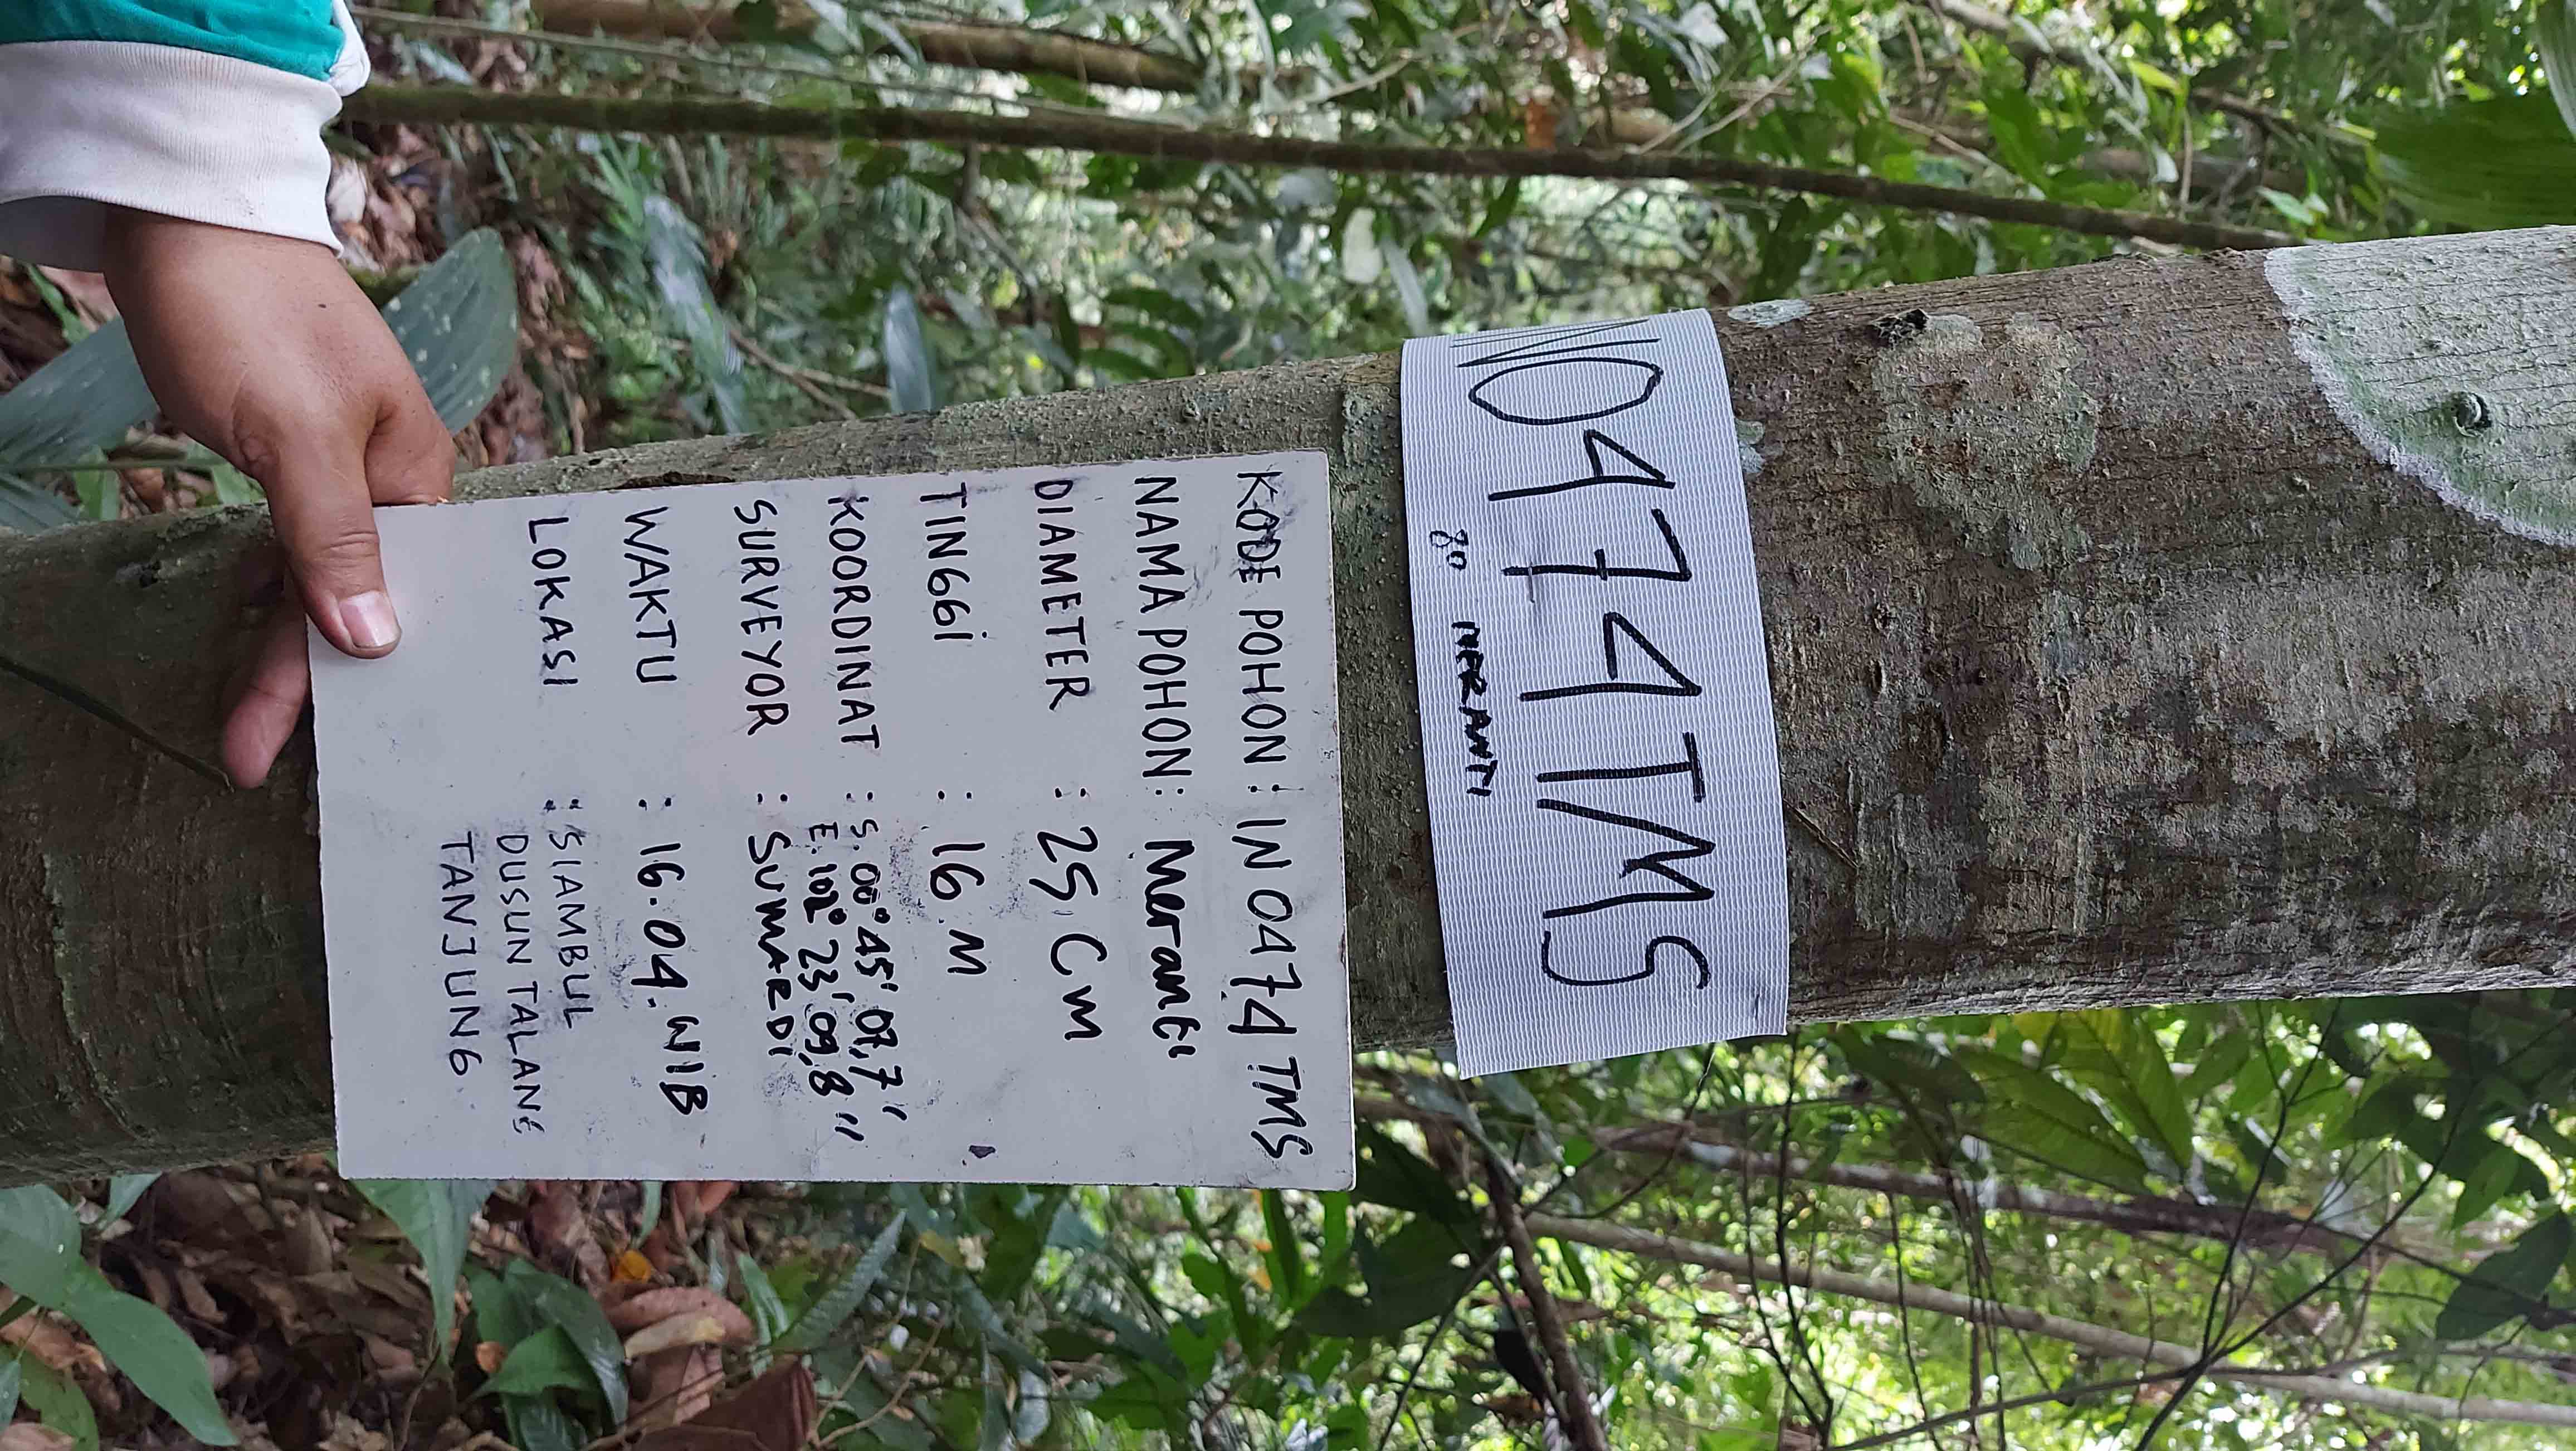 IN0474TMS
80 MERANTI
KODE POHON : IN 0474 TMS
NAMA POHON : Meranti
DIAMETER : 25 Cm
TINGGI : 16 M
KOORDINAT : S. 00° 45' 07,7"
E. 102° 23' 09,8"
SURVEYOR : SUMARDI
WAKTU : 16.04. WIB
LOKASI : SIAMBUL
DUSUN TALANG
TANJUNG